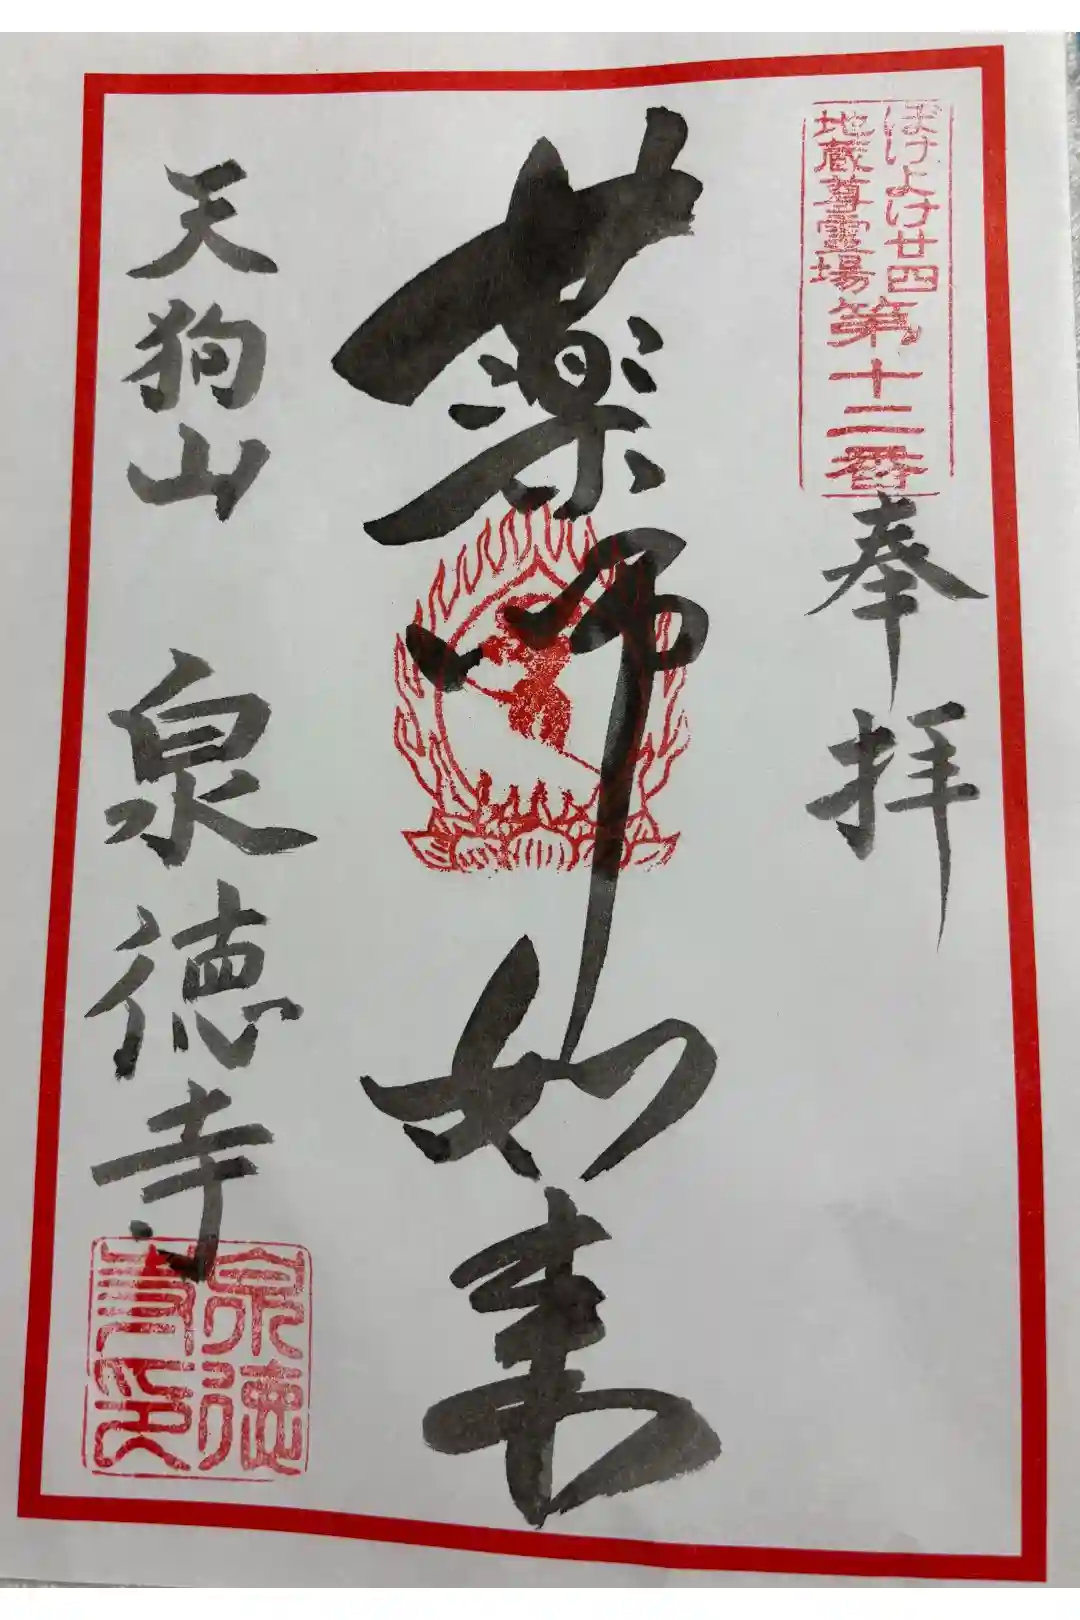 ぼけよけ廿四
地蔵尊霊場
第十二番
奉拝
薬師如来
天狗山
泉徳寺
泉徳
寺印